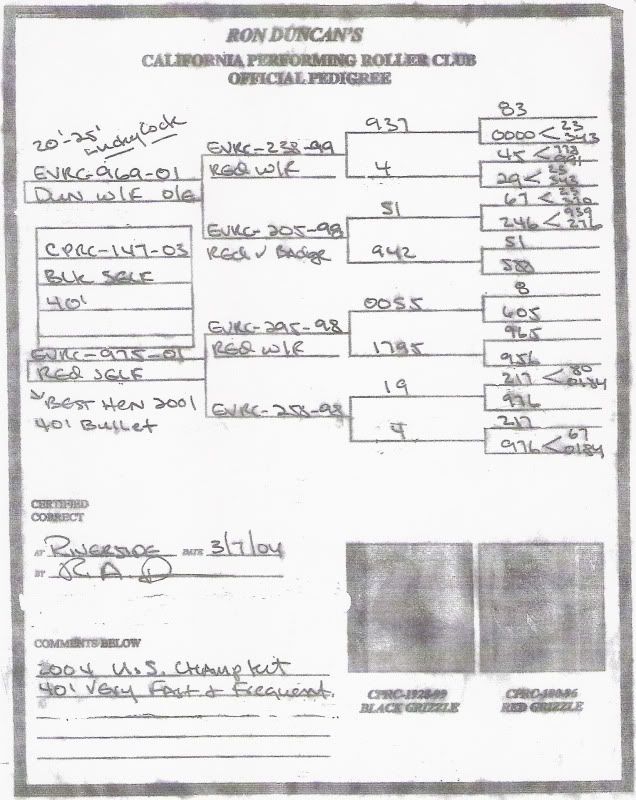 RON DUNCAN'S
CALIFORNIA PERFORMING ROLLER CLUB
OFFICIAL PEDIGREE
20'-25'
Lucky Cock
EVRC-969-01
Dun W/F O/E
CPRC-147-03
BLK SELF
40'
EVRC-975-01
RED SELF
"BEST HEN 2001
40' Bullet
EVRC-238-99
RED W/F
EVRC-205-98
Red ✓ Badge
EVRC-295-98
RED W/F
EVRC-258-98
937
4
51
942
0055
1795
19
4
83
0000 < 23
343
45 <
29 < 23
343
67 < 23
246 < 939
276
51
588
8
605
965
956
217 < 80
0184
976
217
976 < 67
0184
CERTIFIED
CORRECT
AT RIVERSIDE DATE 3/7/04
BY R A D
COMMENTS BELOW
2004 U.S. Champ Kit
40' Very Fast & Frequent.
BLACK GRIZZLE
RED GRIZZLE